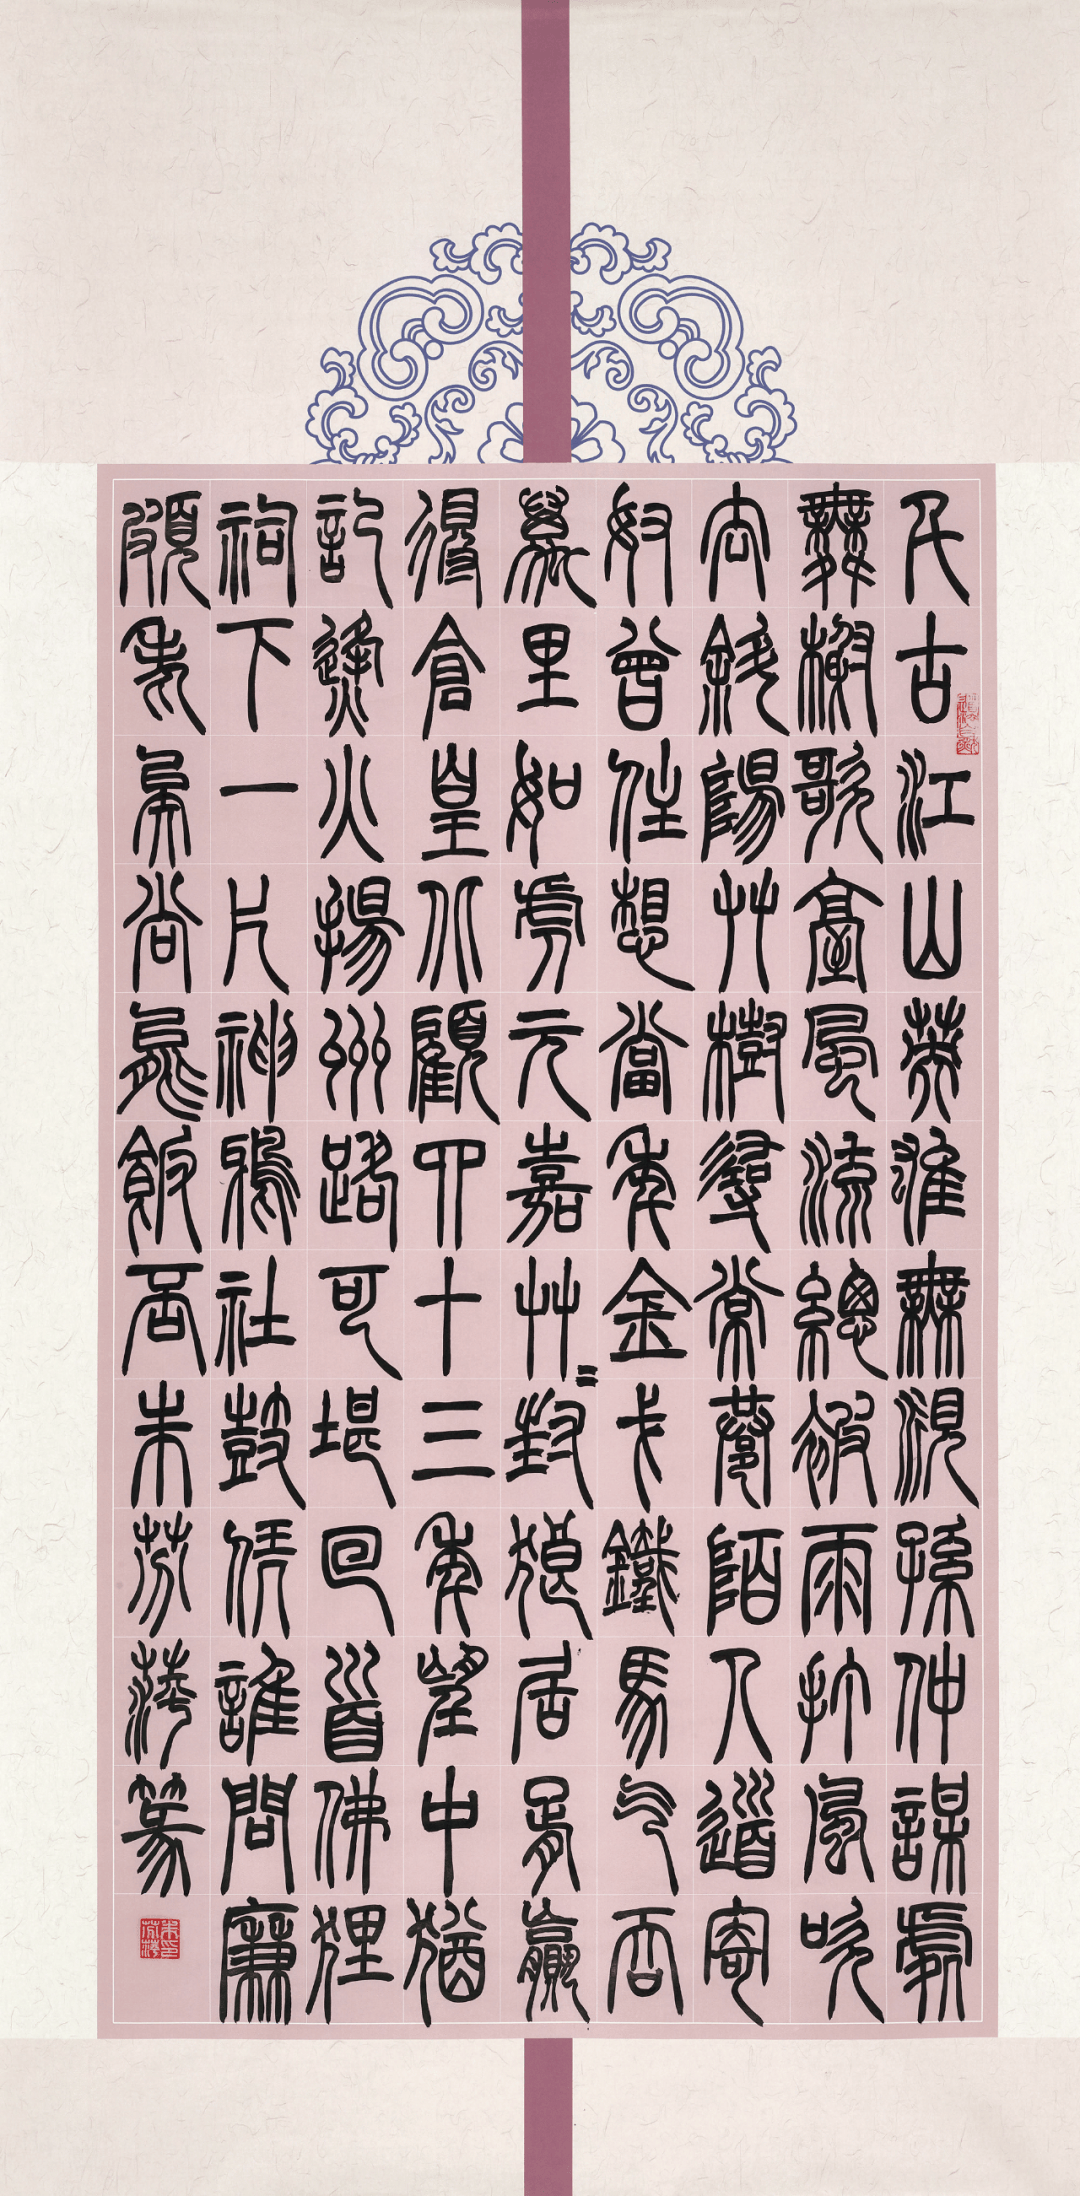 千古江山英雄無覓孫仲謀處
舞榭歌臺風流總被雨打風吹
去斜陽艸樹尋常巷陌人道寄
奴曾住想當年金戈鐵馬氣吞
萬里如虎元嘉艸〻封狼居胥贏
得倉皇北顧四十三年望中猶
記烽火揚州路可堪回首佛狸
祠下一片神鴉社鼓憑誰問廉
頗老矣尚能飯否朱芬萍篆